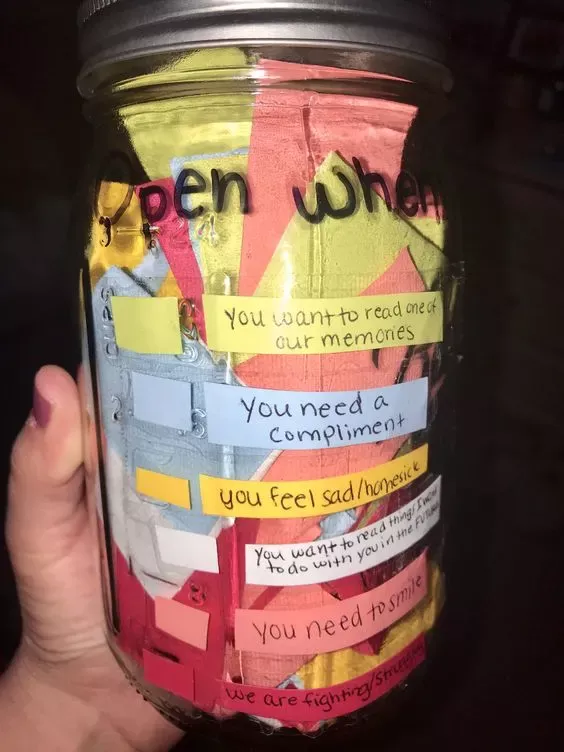 Open when
You want to read one of
our memories
You need a
compliment
you feel sad/homesick
You want to read things I want
to do with you in the FUTURE
You need to smile
we are fighting/struggling
CUPS